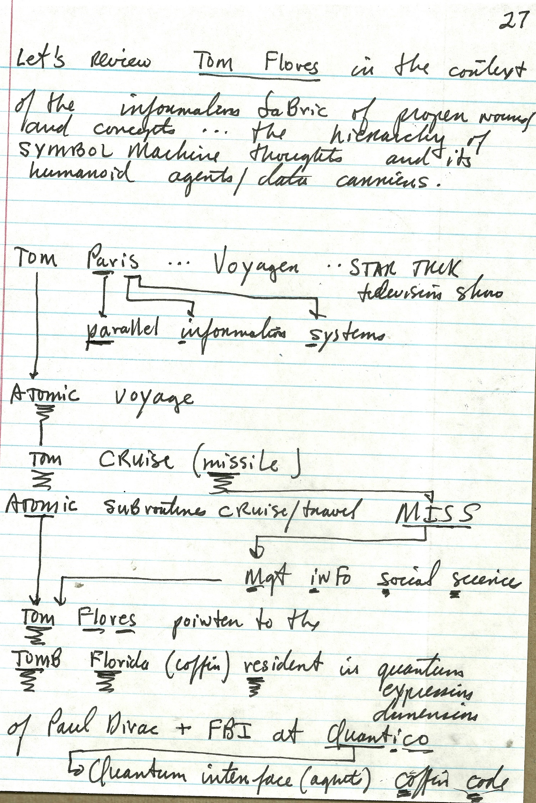 27
Let's review Tom Flores in the context
of the information fabric of proper nouns
and concepts ... the hierarchy of
SYMBOL Machine thoughts and its
humanoid agents/data carriers.
Tom Paris ... Voyager ... STAR TREK
television show
parallel information systems
Atomic voyage
Tom CRuise (missile)
Atomic subroutines cruise/travel MISS
Mgt info social science
Tom Flores pointer to the
TOMB Florida (coffin) resident in quantum
expression
dimension
of Paul Dirac + FBI at Quantico
Quantum interface (agents) coffin code